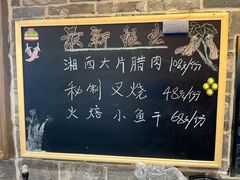 最新推出
湘西大片腊肉 108元/份
秘制叉烧 48元/份
火焙小鱼干 68元/份